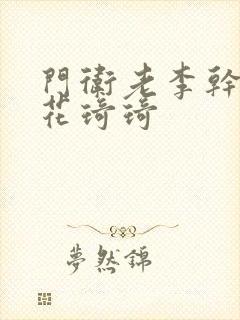 門衛老李幹
花琦琦
夢然錦